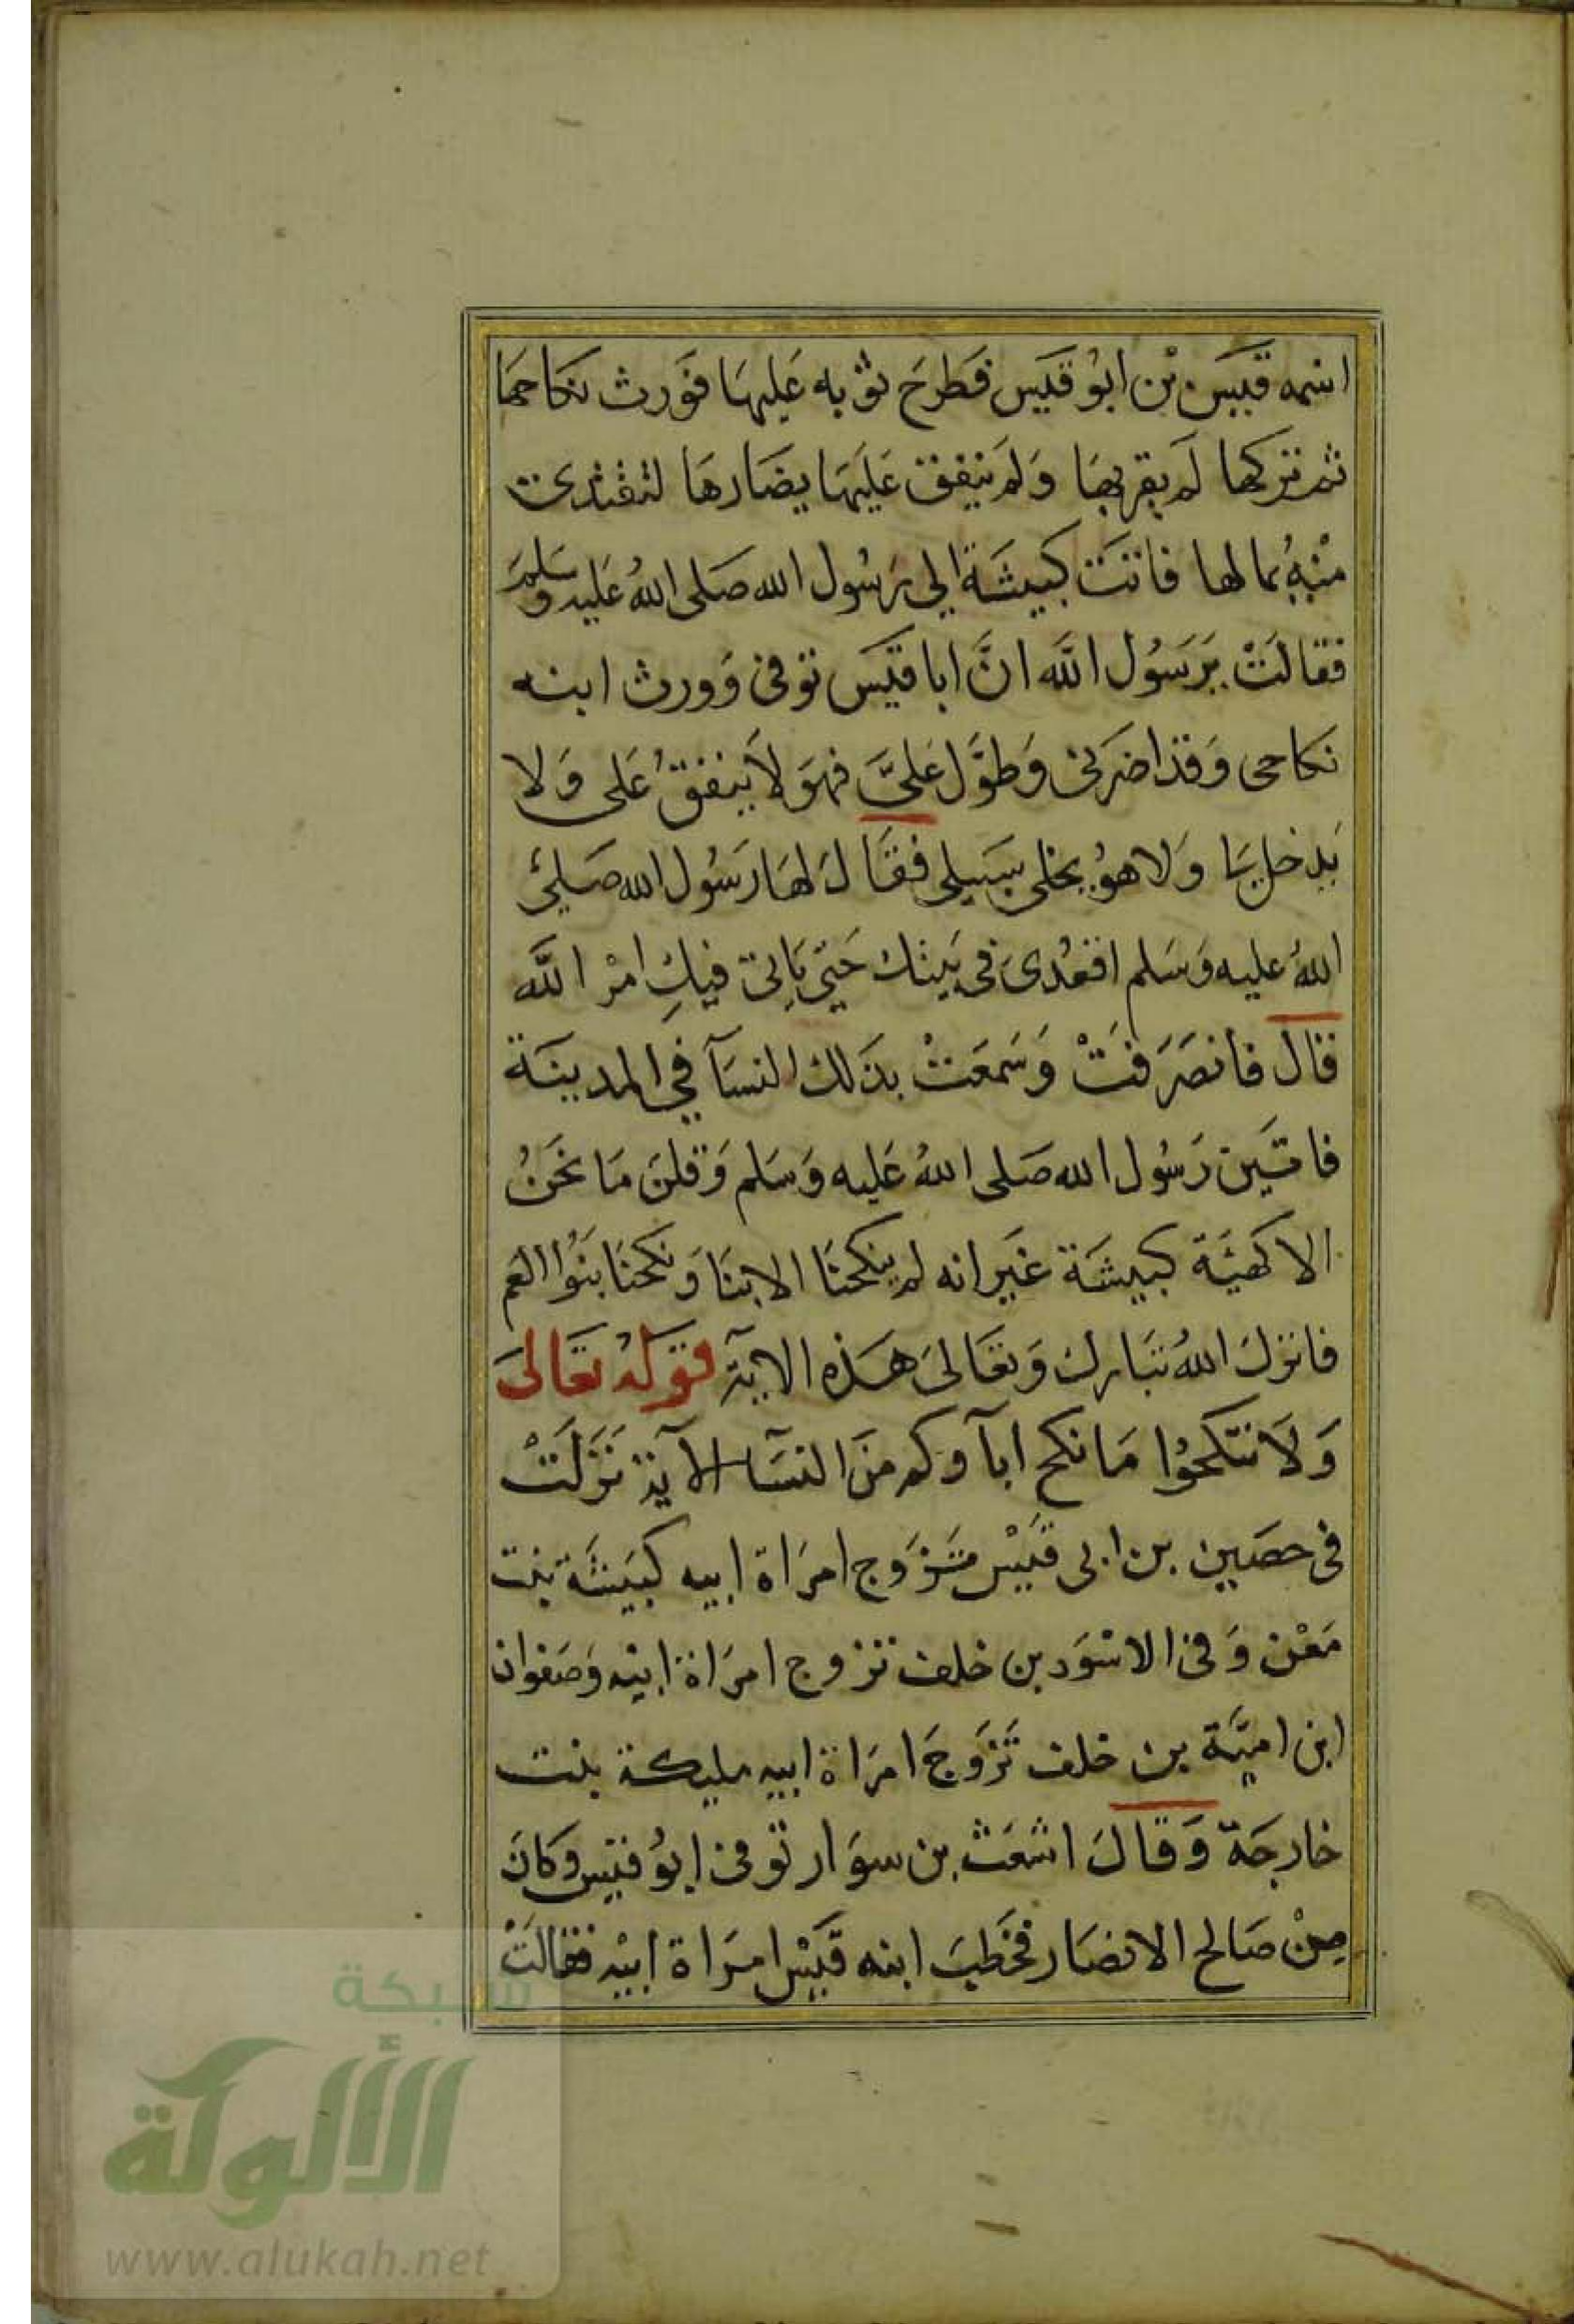 اسمه قيس بن ابو قيس فطرح ثوبه عليها فورث نكاحها
ثم تركها لم يقربها ولم ينفق عليها يضارها لتفتدى
منه بمالها فاتت كبيشة الى رسول الله صلى الله عليه وسلم
فقالت يرسول الله ان ابا قيس توفى وورث ابنه
نكاحى وقد اضرنى وطول على فهو لا ينفق على ولا
يدخل بى ولا هو يخلى سبيلى فقال لها رسول الله صلى
الله عليه وسلم اقعدى فى بيتك حتى ياتى فيك امر الله
قال فانصرفت وسمعت بذلك النسآ في المدينة
فاتين رسول الله صلى الله عليه وسلم وقلن ما نحن
الا كهيئة كبيشة غير انه لم ينكحنا الابنا ونكحنا بنوا العم
فانزل الله تبارك وتعالى هذه الاية قوله تعالى
ولا تنكحوا ما نكح اباؤكم من النسآ الآية نزلت
فى حصين بن ابى قيس تزوج امراة ابيه كبيشة بنت
معن وفى الاسود بن خلف تزوج امراة ابيه وصفوان
ابن امية بن خلف تزوج امراة ابيه مليكة بنت
خارجة وقال اشعث بن سوار توفى ابو قيس وكان
من صالح الانصار فخطب ابنه قيس امراة ابيه فقالت
شبكة
الألوكة
www.alukah.net